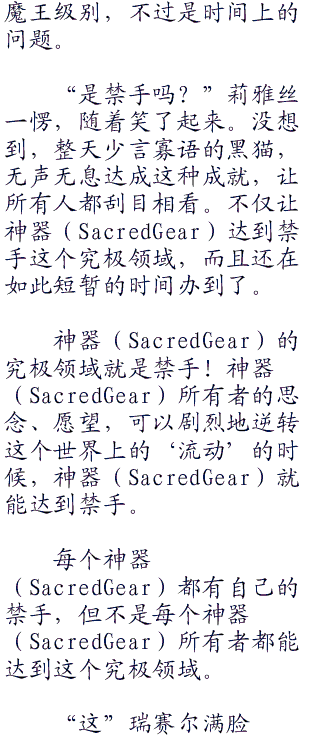 魔王级别，不过是时间上的
问题。
“是禁手吗？”莉雅丝
一愣，随着笑了起来。没想
到，整天少言寡语的黑猫，
无声无息达成这种成就，让
所有人都刮目相看。不仅让
神器（SacredGear）达到禁
手这个究极领域，而且还在
如此短暂的时间办到了。
神器（SacredGear）的
究极领域就是禁手！神器
（SacredGear）所有者的思
念、愿望，可以剧烈地逆转
这个世界上的‘流动’的时
候，神器（SacredGear）就
能达到禁手。
每个神器
（SacredGear）都有自己的
禁手，但不是每个神器
（SacredGear）所有者都能
达到这个究极领域。
“这”瑞赛尔满脸